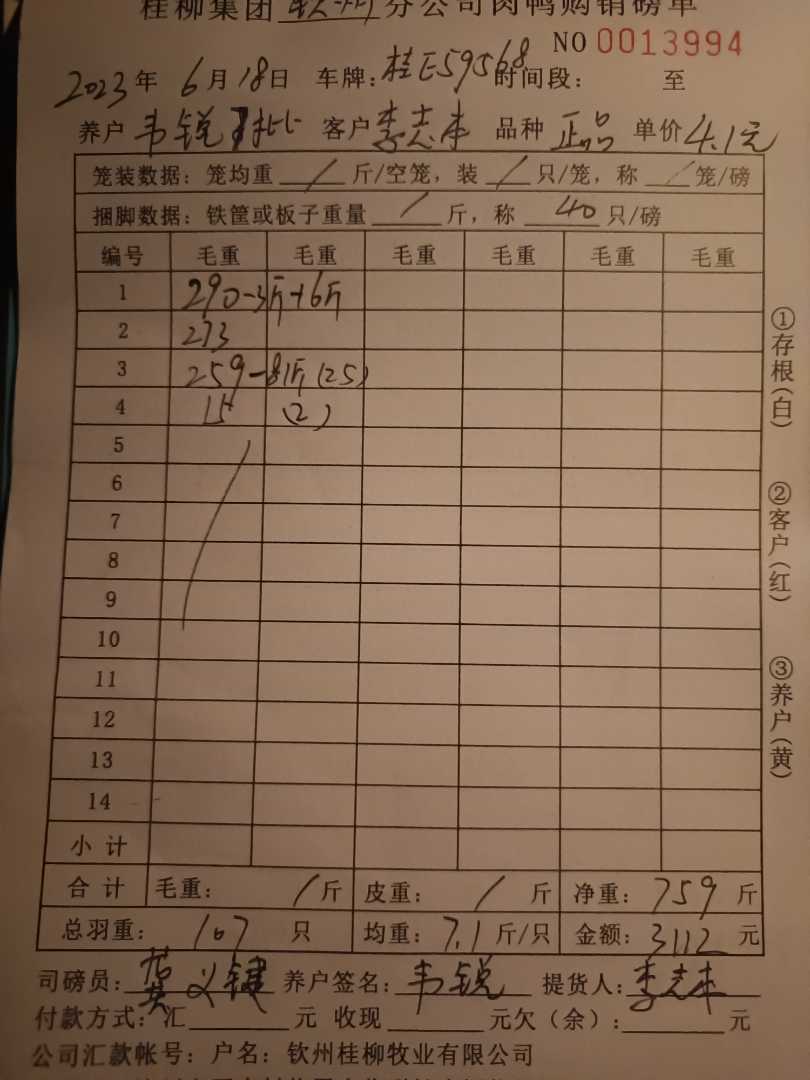 桂柳集团钦州分公司肉鸭购销磅单
NO 0013994
2023年6月18日 车牌:桂E59568 时间段: 至
养户 韦锐 客户 李志本 品种 正品 单价4.1元
笼装数据:笼均重 / 斤/空笼,装 / 只/笼,称 / 笼/磅
捆脚数据:铁筐或板子重量 / 斤,称 40 只/磅
编号 毛重 毛重 毛重 毛重 毛重 毛重
1 290-3斤+6斤
2 273
3 259-81斤(25)
4 15 (2)
5
6
7
8
9
10
11
12
13
14
小计
合计 毛重: / 斤 皮重: / 斤 净重:759斤
总羽重:107只 均重:7.1斤/只 金额:3112元
司磅员:龚义键 养户签名:韦锐 提货人:李志本
付款方式:汇 元 收现 元欠(余): 元
公司汇款帐号:户名:钦州桂柳牧业有限公司
①存根(白)
②客户(红)
③养户(黄)